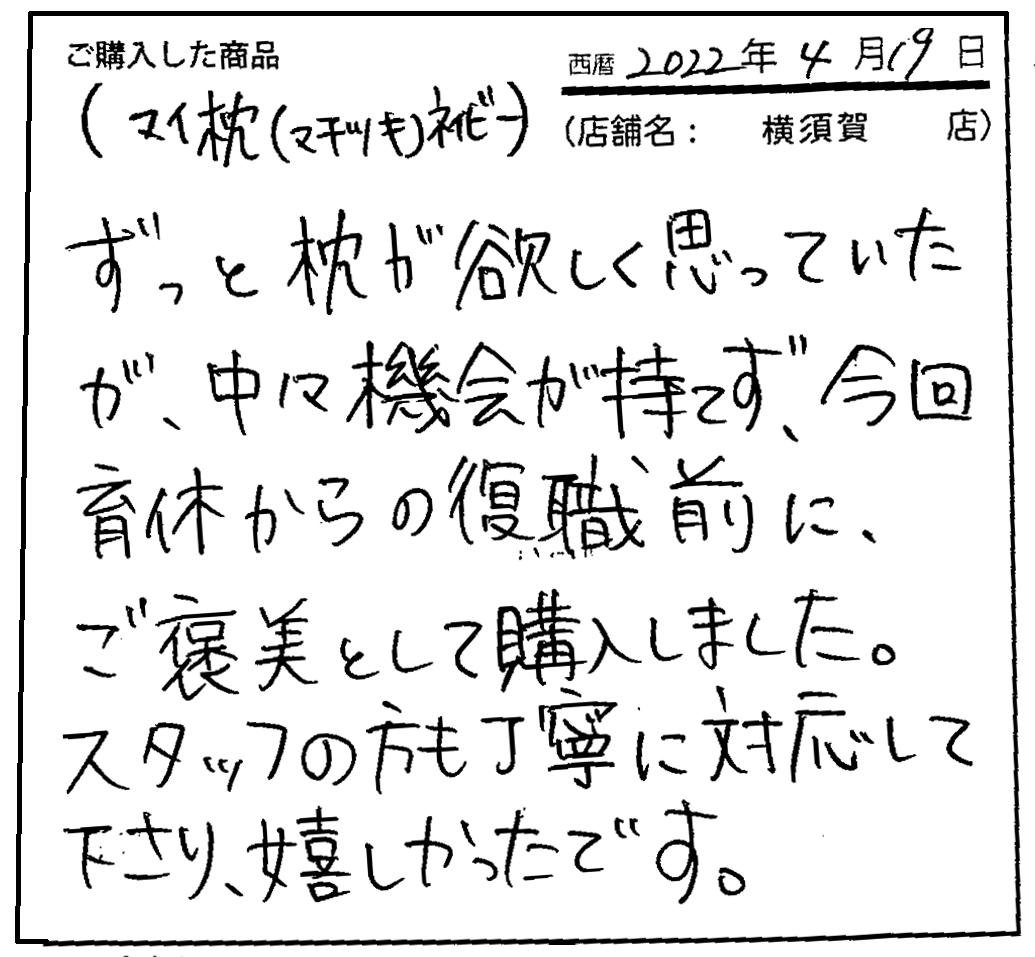 ご購入した商品
西暦 2022年 4月19日
(マイ枕(マチツキ)ネイビー)
(店舗名： 横須賀 店)
ずっと枕が欲しく思っていた
が、中々機会が持てず、今回
育休からの復職前に、
ご褒美として購入しました。
スタッフの方も丁寧に対応して
下さり、嬉しかったです。